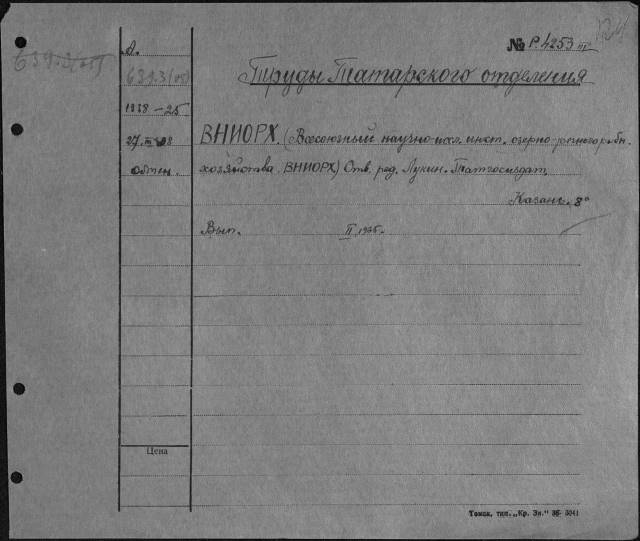 № Р.4253 III
639.3(05)
А.
639.3(05)
Труды Татарского отделения
1938-25
27.III
ВНИОРХ. (Всесоюзный научно-иссл. инст. озерно-речного рыбн.
Обмен.
хозяйства. ВНИОРХ) Отв. ред. Лукин. Татгосиздат,
Казань. 8°
Вып. II 1935.
Цена
Томск, тип. „Кр. Зн."